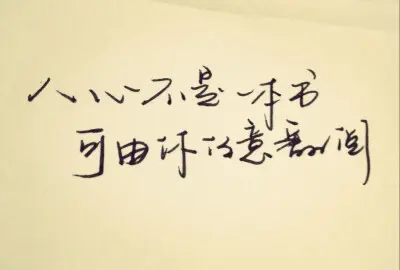 人心不是一本书
可由你任意翻阅